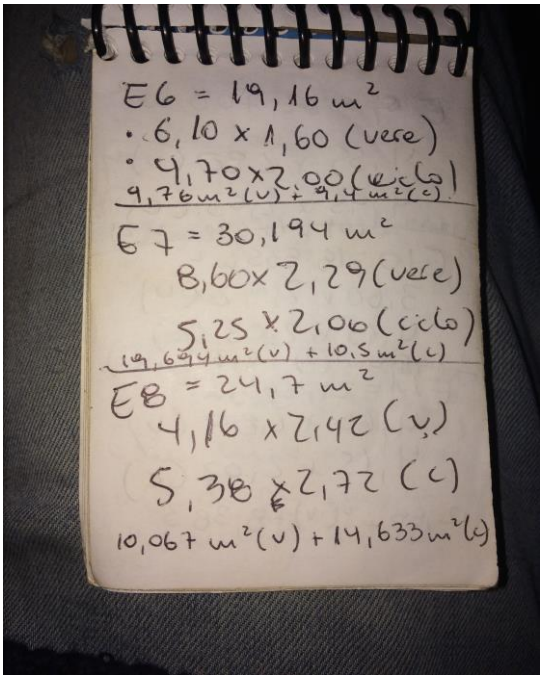 E6 = 19,16 m²
• 6,10 x 1,60 (vere)
• 4,70x2,00 (ciclo)
9,76 m² (v) + 9,4 m² (c)
E7 = 30,194 m²
8,60x 2,29 (vere)
5,25 x 2,00 (ciclo)
19,694 m² (v) + 10,5 m² (c)
E8 = 24,7 m²
4,16 x 2,42 (v)
5,38 x 2,72 (c)
10,067 m² (v) + 14,633 m² (c)